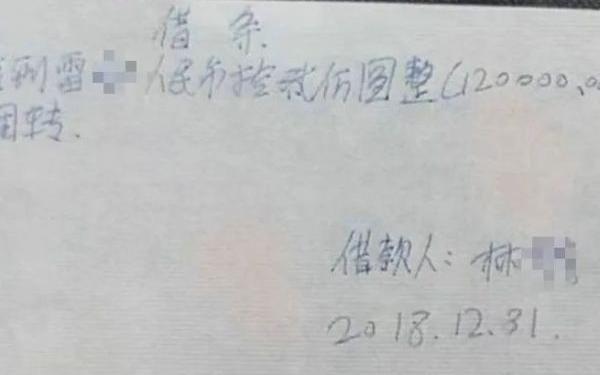 借条
到雷 人民币 贰 圆整(120000.00
周转.
借款人: 林
2018.12.31.